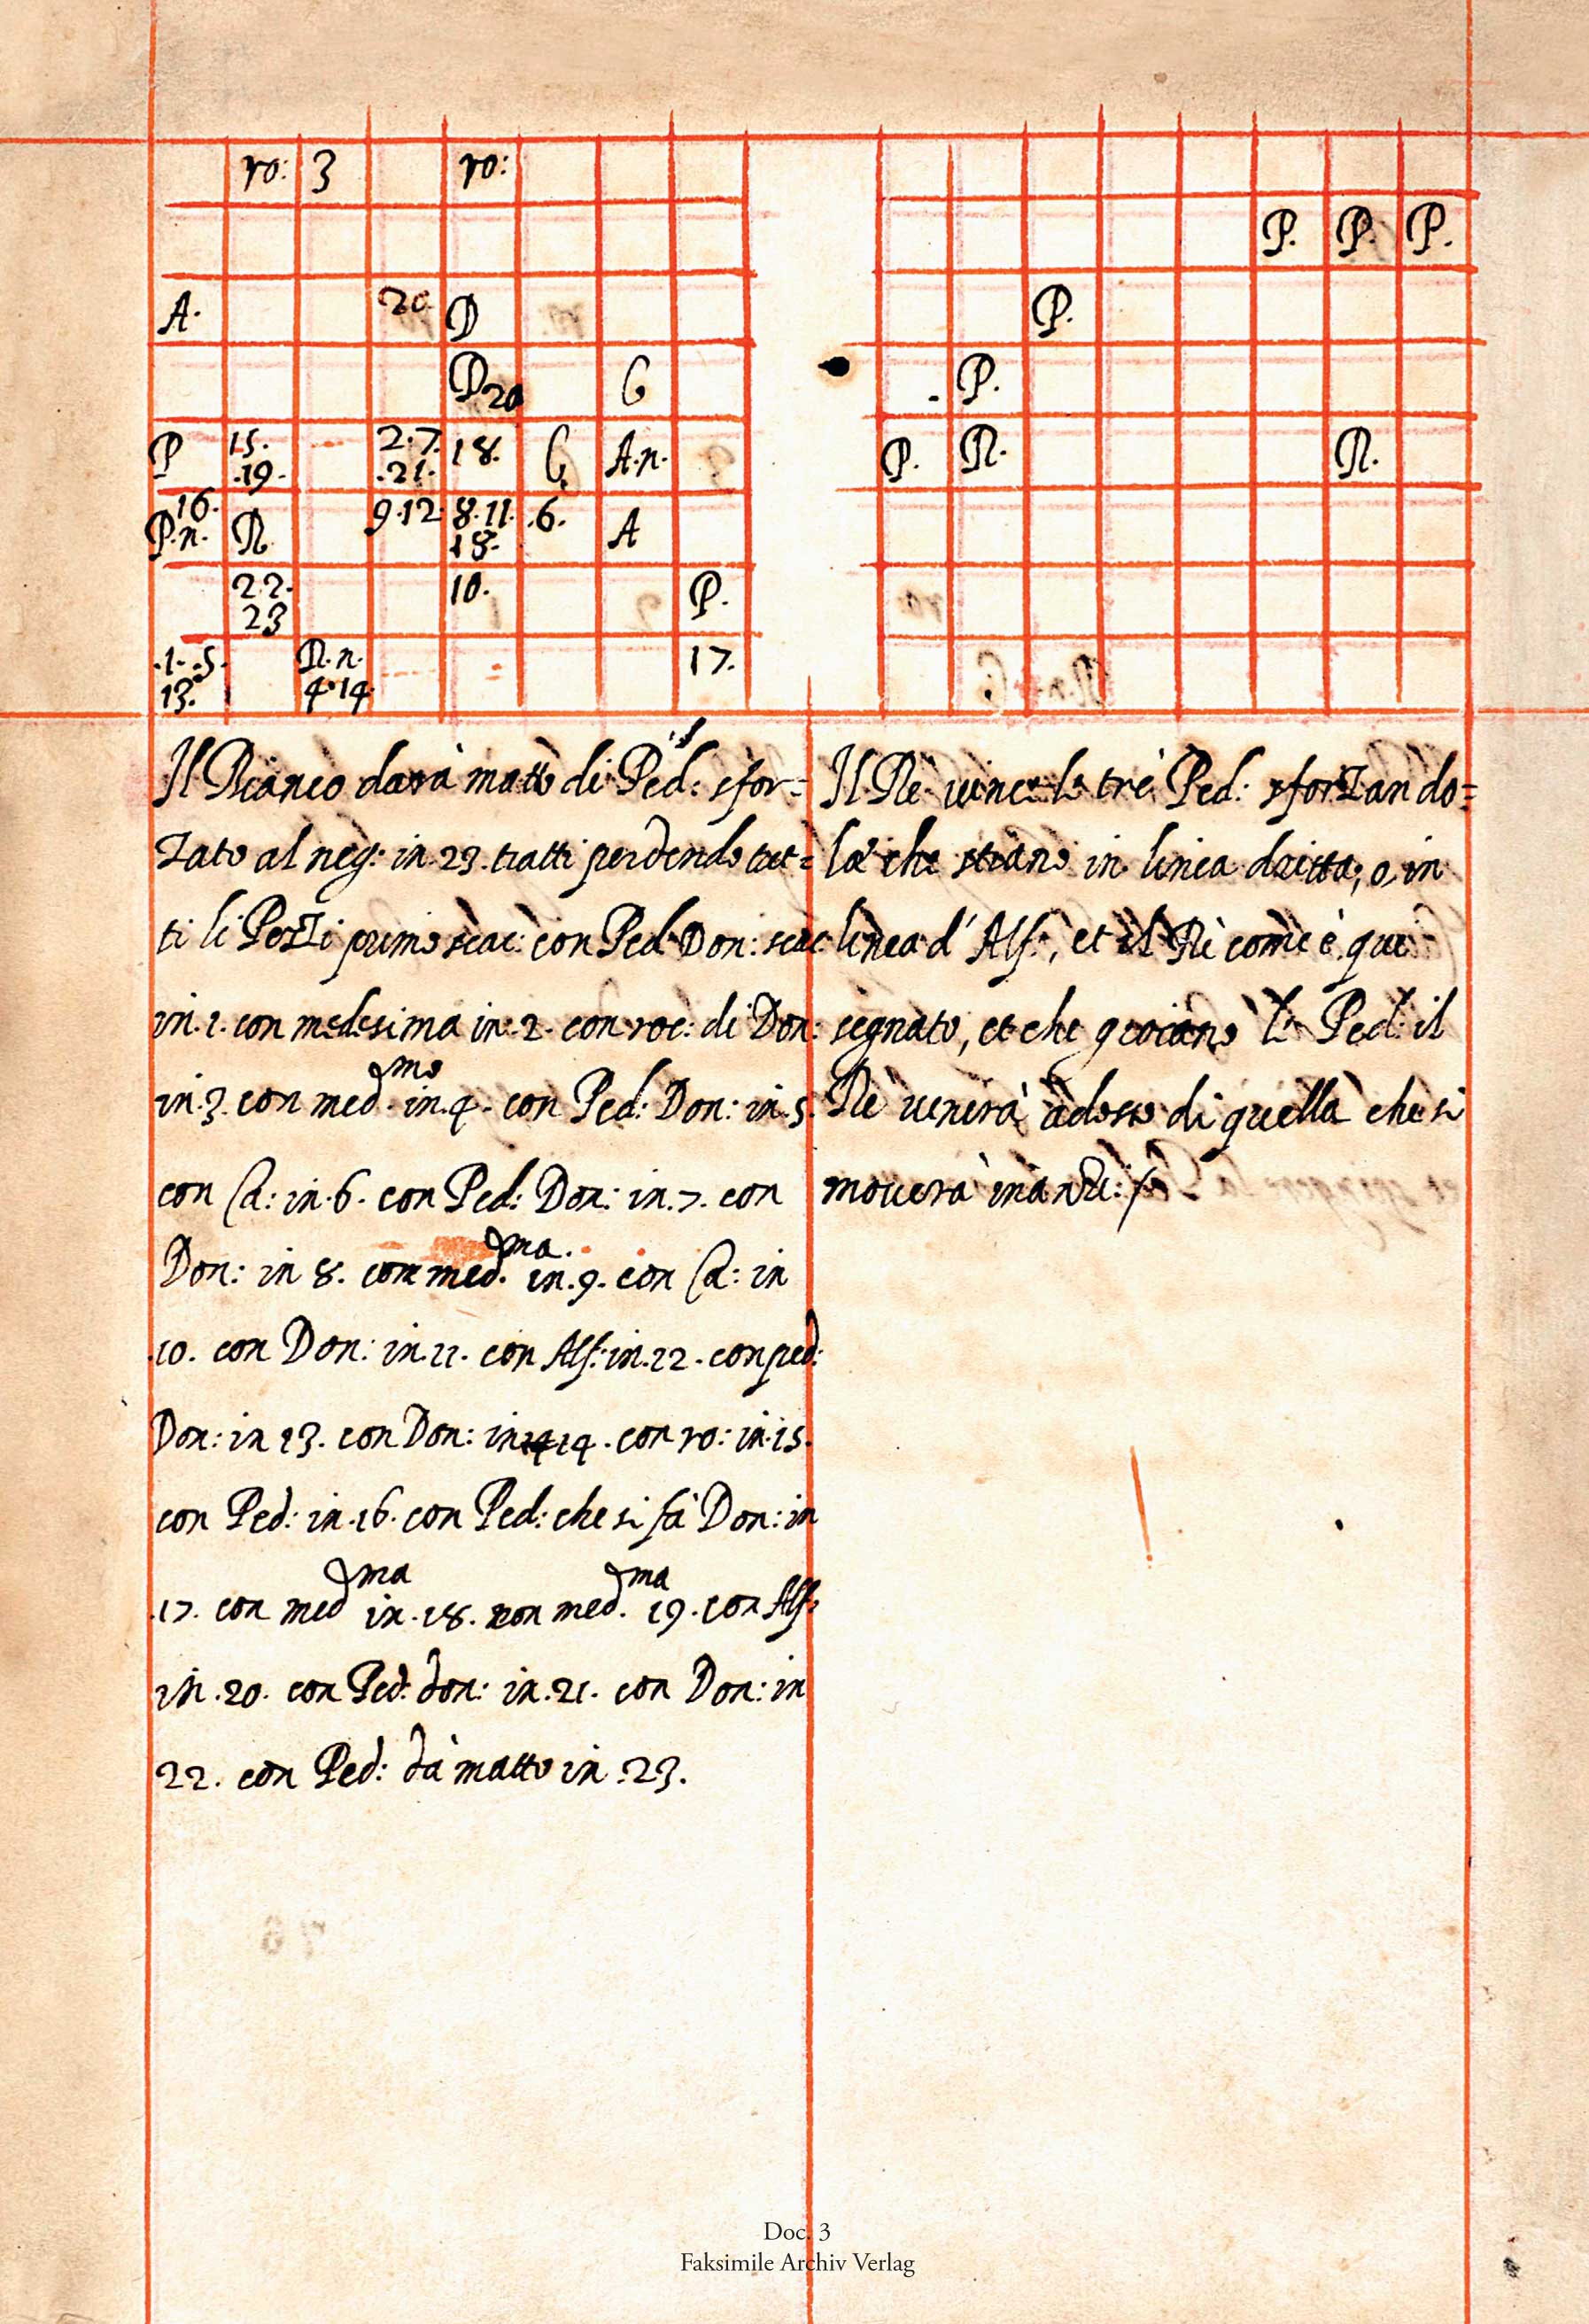 ro: 3 ro:
A. 20. D
D 20 G
P 15. 2.7. 18. G A.n.
.19. .21.
16. 9.12. 8.11. .6. A
P.n. R 18.
22. 10. P.
23
.1. .5. R.n. 17.
13. 4.14.
P. P. P.
P.
P.
P. R. R.
Il Bianco darà matto di Ped: sfor=
zato al neg: in 23. tratti perdendo tut=
ti li Pezzi primo scac: con Ped Don: scac:
in.1. con medesima in.2. con roc: di Don:
in.3. con med.mo in.4. con Ped: Don: in.5.
con Ca: in.6. con Ped: Don: in.7. con
Don: in 8. con med.ma in.9. con Ca: in
10. con Don: in.11. con Alf: in.12. con ped:
Don: in 13. con Don: in 14. con ro: in.15.
con Ped: in.16. con Ped: che si fà Don: in
.17. con med.ma in.18. con med.ma 19. con Alf:
in.20. con Ped: don: in.21. con Don: in
22. con Ped: dà matto in.23.
Il Rè vince le trè Ped: sforzando=
le che stiano in linea dritta, o, in
linea d'Alf:, et il Rè come è qui
segnato, et che giocano le Ped: il
Rè venirà adosso di quella che si
moverà inanzi:
Doc. 3
Faksimile Archiv Verlag